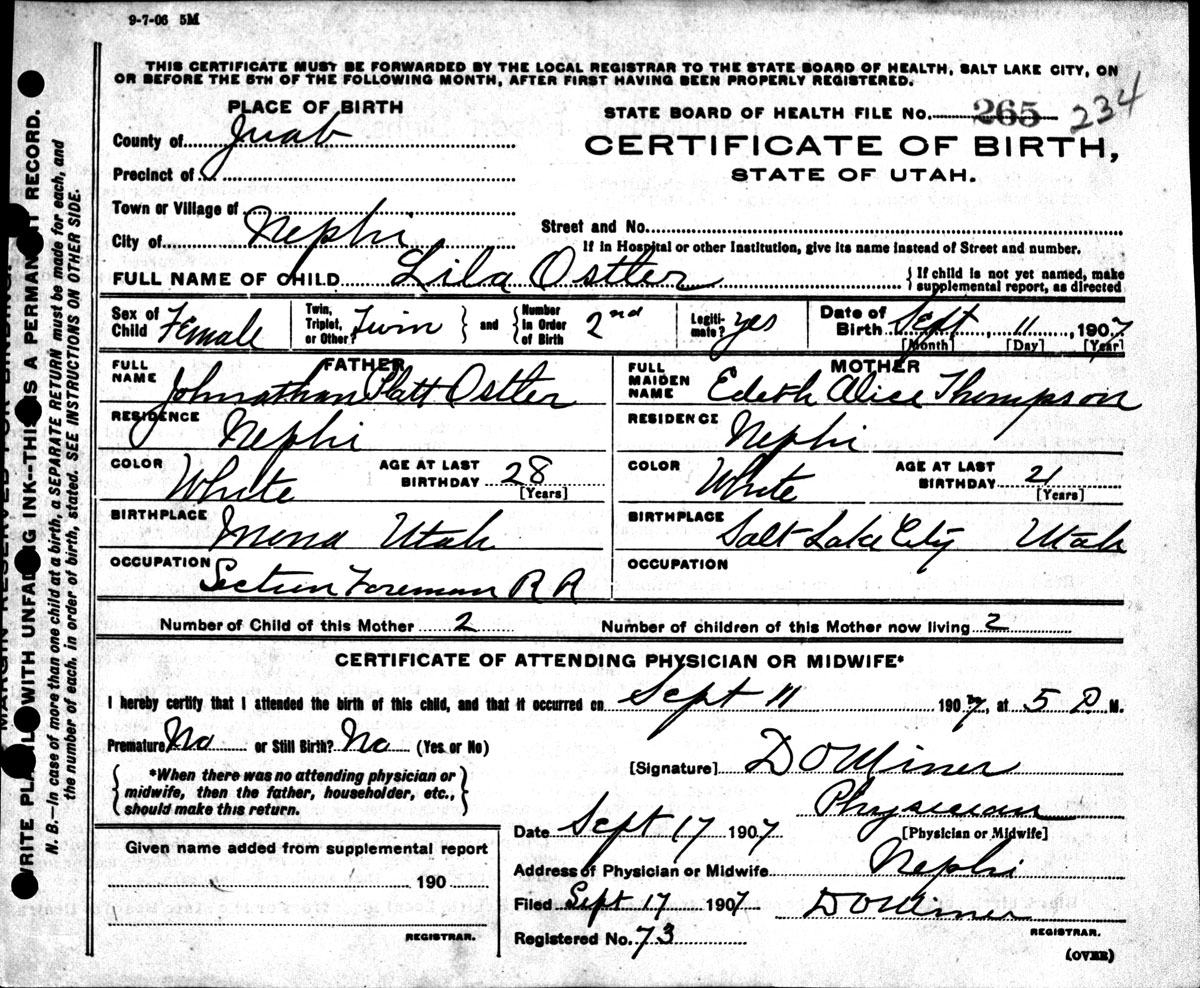 9-7-06 5M
THIS CERTIFICATE MUST BE FORWARDED BY THE LOCAL REGISTRAR TO THE STATE BOARD OF HEALTH, SALT LAKE CITY, ON
OR BEFORE THE 5TH OF THE FOLLOWING MONTH, AFTER FIRST HAVING BEEN PROPERLY REGISTERED.
PLACE OF BIRTH
County of Juab
Precinct of
Town or Village of
City of Nephi
STATE BOARD OF HEALTH FILE No. 265 234
CERTIFICATE OF BIRTH,
STATE OF UTAH.
Street and No.
If in Hospital or other Institution, give its name instead of Street and number.
FULL NAME OF CHILD Lila Ostler
{If child is not yet named, make
supplemental report, as directed
Sex of Child Female
Twin, Triplet, or Other? Twin } and { Number in Order of Birth 2nd
Legitimate? yes
Date of Birth Sept, 11, 1907
[Month] [Day] [Year]
FATHER
FULL NAME Johnathan Platt Ostler
RESIDENCE Nephi
COLOR White AGE AT LAST BIRTHDAY 28 [Years]
BIRTHPLACE Mona Utah
OCCUPATION Section Foreman R R
MOTHER
FULL MAIDEN NAME Edeth Alice Thompson
RESIDENCE Nephi
COLOR White AGE AT LAST BIRTHDAY 21 [Years]
BIRTHPLACE Salt Lake City Utah
OCCUPATION
Number of Child of this Mother 2 Number of children of this Mother now living 2
CERTIFICATE OF ATTENDING PHYSICIAN OR MIDWIFE*
I hereby certify that I attended the birth of this child, and that it occurred on Sept 11 1907, at 5 P. M.
Premature No or Still Birth? No (Yes or No)
{*When there was no attending physician or
midwife, then the father, householder, etc.,
should make this return.}
[Signature] D O Miner
Physician
[Physician or Midwife]
Date Sept 17 1907
Address of Physician or Midwife Nephi
Filed Sept 17 1907 D O Miner
REGISTRAR.
Registered No. 73
(OVER)
Given name added from supplemental report
190
REGISTRAR.
WRITE PLAINLY WITH UNFADING INK--THIS IS A PERMANENT RECORD.
N. B.--In case of more than one child at a birth, a SEPARATE RETURN must be made for each, and
the number of each, in order of birth, stated. SEE INSTRUCTIONS ON OTHER SIDE.